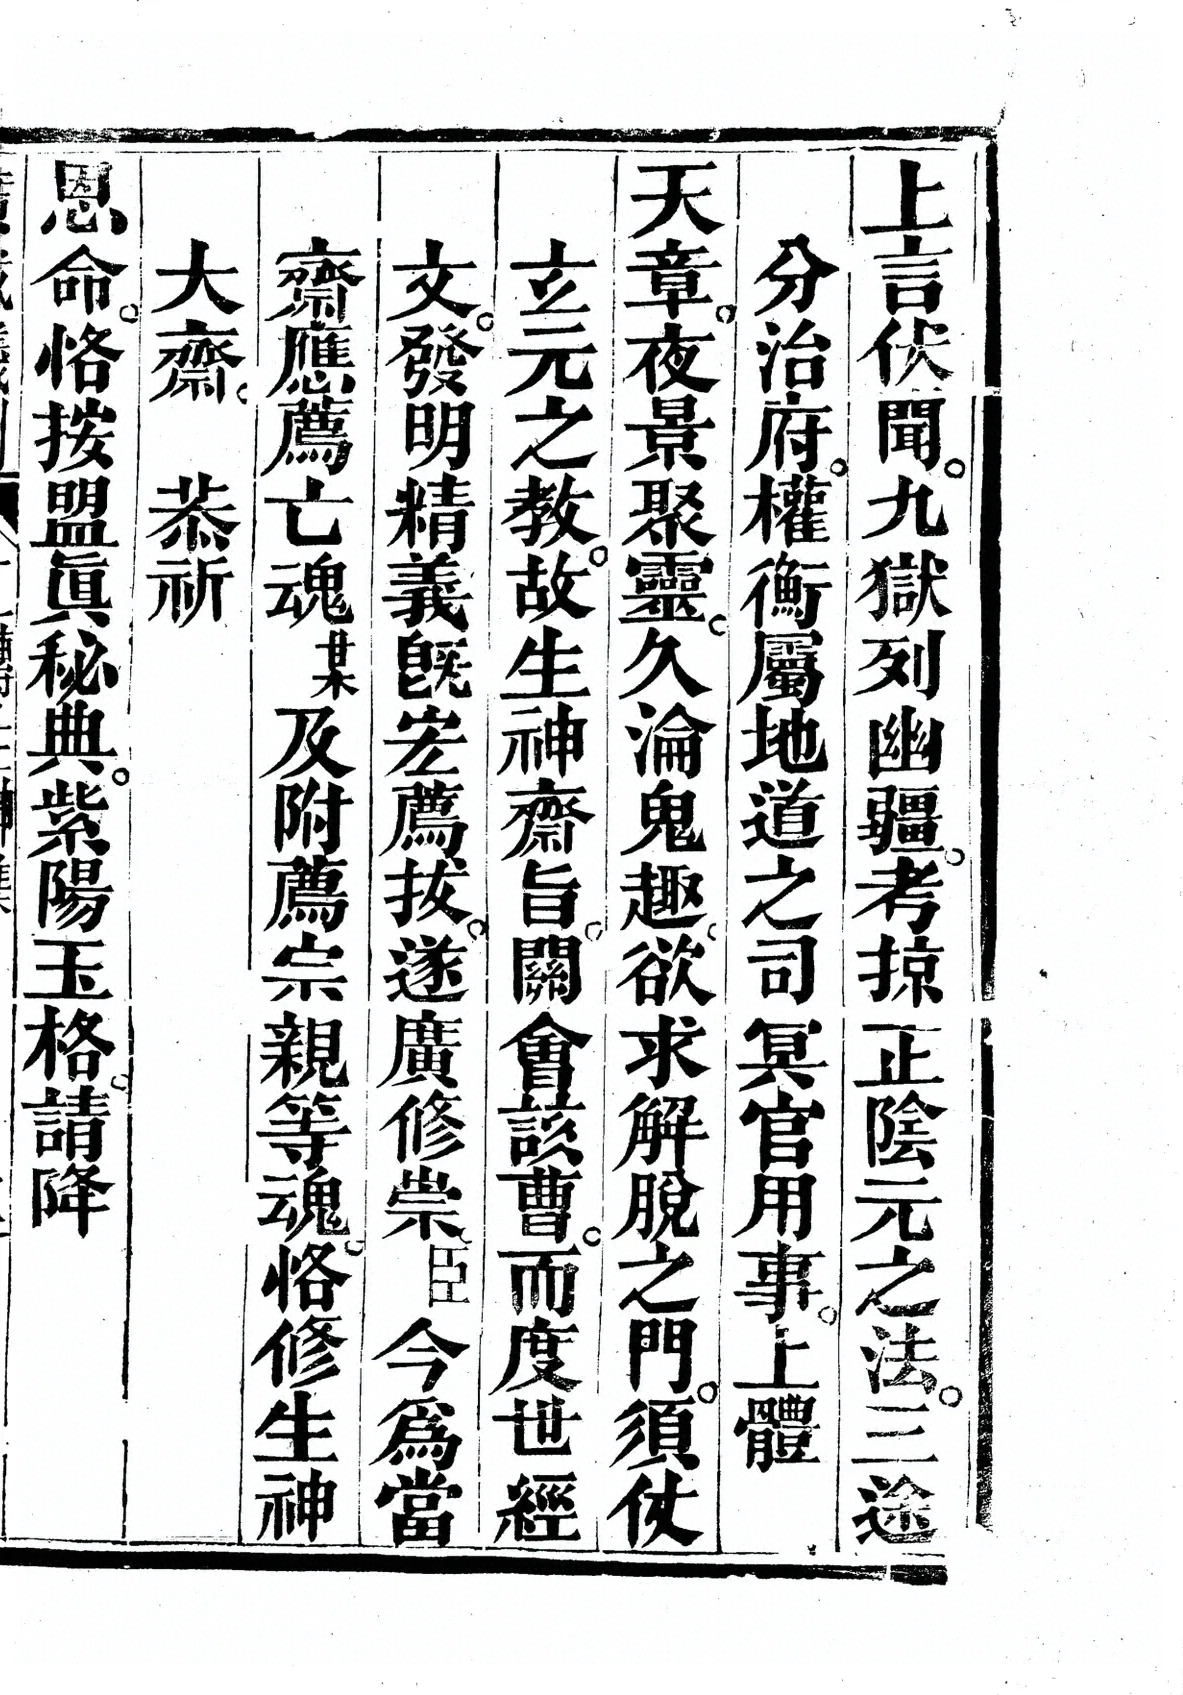 上言伏聞。九獄列幽疆。考掠正陰元之法。三途
分治府。權衡屬地道之司冥官用事。上體
天章。夜景聚靈。久淪鬼趣。欲求解脫之門。須仗
玄元之教。故生神齋旨。關會該曹。而度世經
文。發明精義旣宏薦拔。遂廣修崇。臣今爲當
齋應薦亡魂某及附薦宗親等魂。恪修生神
大齋。恭祈
恩命。恪按盟眞秘典。紫陽玉格。請降